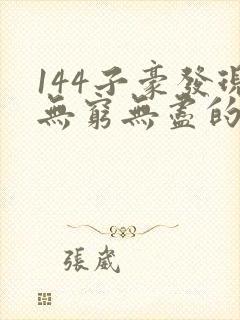 144子豪發現
無窮無盡的
張崴